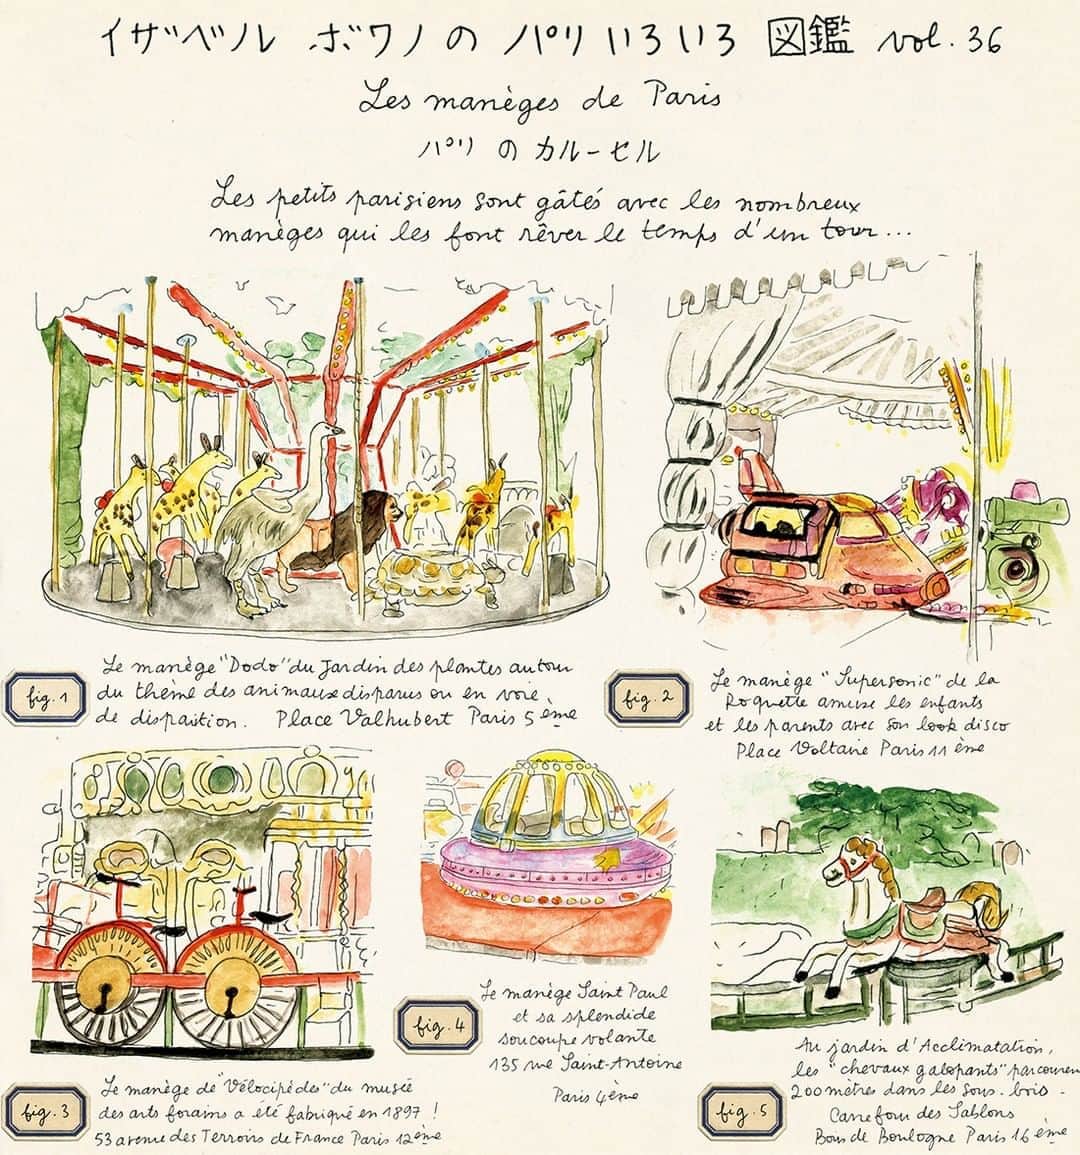 イザベル ボワノの パリいろいろ 図鑑 vol. 36
Les manèges de Paris
パリ の カルーセル
Les petits parisiens sont gâtés avec les nombreux
manèges qui les font rêver le temps d'un tour...
fig. 1
Le manège "Dodo" du Jardin des plantes autour
du thème des animaux disparus ou en voie
de disparition. Place Valhubert Paris 5ème
fig. 2
Le manège "Supersonic" de la
Roquette amuse les enfants
et les parents avec son look disco
Place Voltaire Paris 11 ème
fig. 3
Le manège de "Vélocipèdes" du musée
des arts forains a été fabriqué en 1897 !
53 avenue des Terroirs de France Paris 12ème
fig. 4
Le manège Saint Paul
et sa splendide
soucoupe volante
135 rue Saint-Antoine
Paris 4ème
fig. 5
Au jardin d'Acclimatation,
les "chevaux galopants" parcouren
200 mètres dans les sous-bois.
Carrefour des Sablons
Bois de Boulogne Paris 16 ème